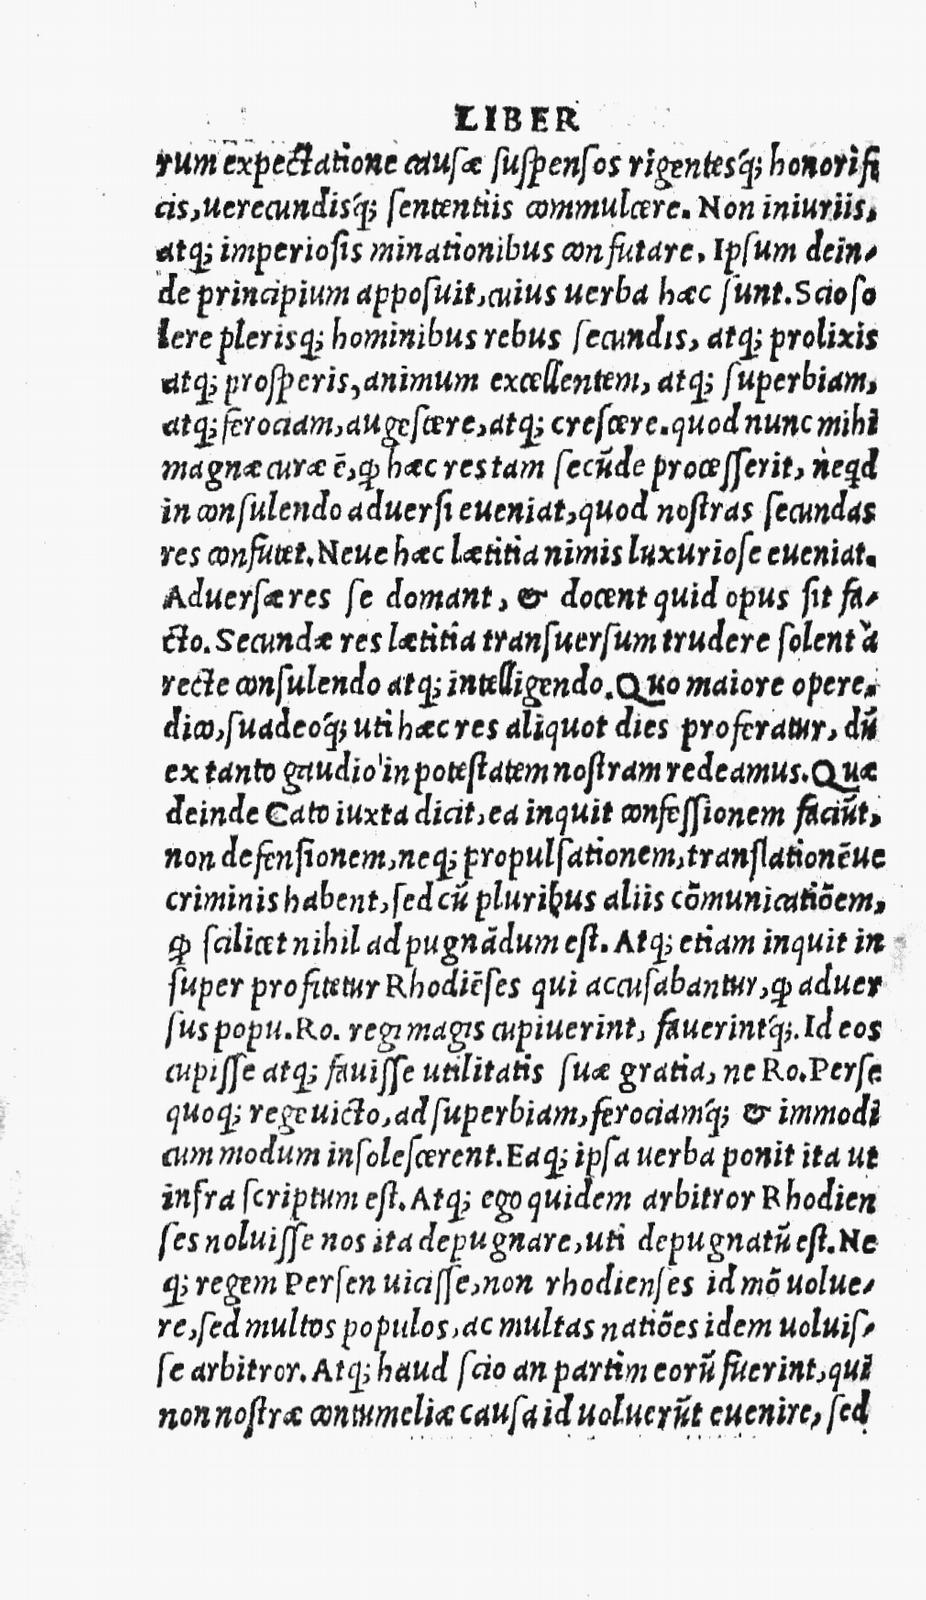 LIBER
rum expectatione causæ ſuſpenſos rigentesq́; honorifi
cis, uerecundisq́; ſententiis commulcere. Non iniuriis,
atq; imperioſis minationibus confutare. Ipſum dein-
de principium appoſuit, cuius uerba hæc ſunt. Scio ſo
lere plerisq; hominibus rebus ſecundis, atq; prolixis
atq; proſperis, animum excellentem, atq; ſuperbiam,
atq; ferociam, augeſcere, atq; creſcere. quod nunc mihi
magnæ curæ ē, ꝙ hæc res tam ſecūde proceſſerit, neqd
in conſulendo aduerſi eueniat, quod noſtras ſecundas
res confutet. Neue hæc lætitia nimis luxurioſe eueniat.
Aduerſæ res ſe domant, & docent quid opus ſit fa-
cto. Secundæ res lætitia tranſuerſum trudere ſolent à
recte conſulendo atq; intelligendo. Quo maiore opere,
dico, ſuadeoq́; uti hæc res aliquot dies proferatur, dū
ex tanto gaudio in poteſtatem noſtram redeamus. Quæ
deinde Cato iuxta dicit, ea inquit confeſſionem faciūt,
non defenſionem, neq; propulſationem, tranſlationēue
criminis habent, ſed cū pluribus aliis cōmunicatiōem,
ꝙ ſcilicet nihil ad pugnādum eſt. Atq; etiam inquit in
ſuper profitetur Rhodiēſes qui accuſabantur, ꝙ aduer
ſus popu. Ro. regi magis cupiuerint, fauerintq́;. Id eos
cupiſſe atq; fauiſſe utilitatis ſuæ gratia, ne Ro. Perſe
quoq; rege uicto, ad ſuperbiam, ferociamq́; & immodi
cum modum inſoleſcerent. Eaq; ipſa uerba ponit ita ut
infra ſcriptum eſt. Atq; ego quidem arbitror Rhodien
ſes noluiſſe nos ita depugnare, uti depugnatū eſt. Ne
q; regem Perſen uiciſſe, non rhodienſes id mō uolue-
re, ſed multos populos, ac multas natiōes idem uoluiſ-
ſe arbitror. Atq; haud ſcio an partim eorū fuerint, qui
non noſtræ contumeliæ cauſa id uoluerūt euenire, ſed